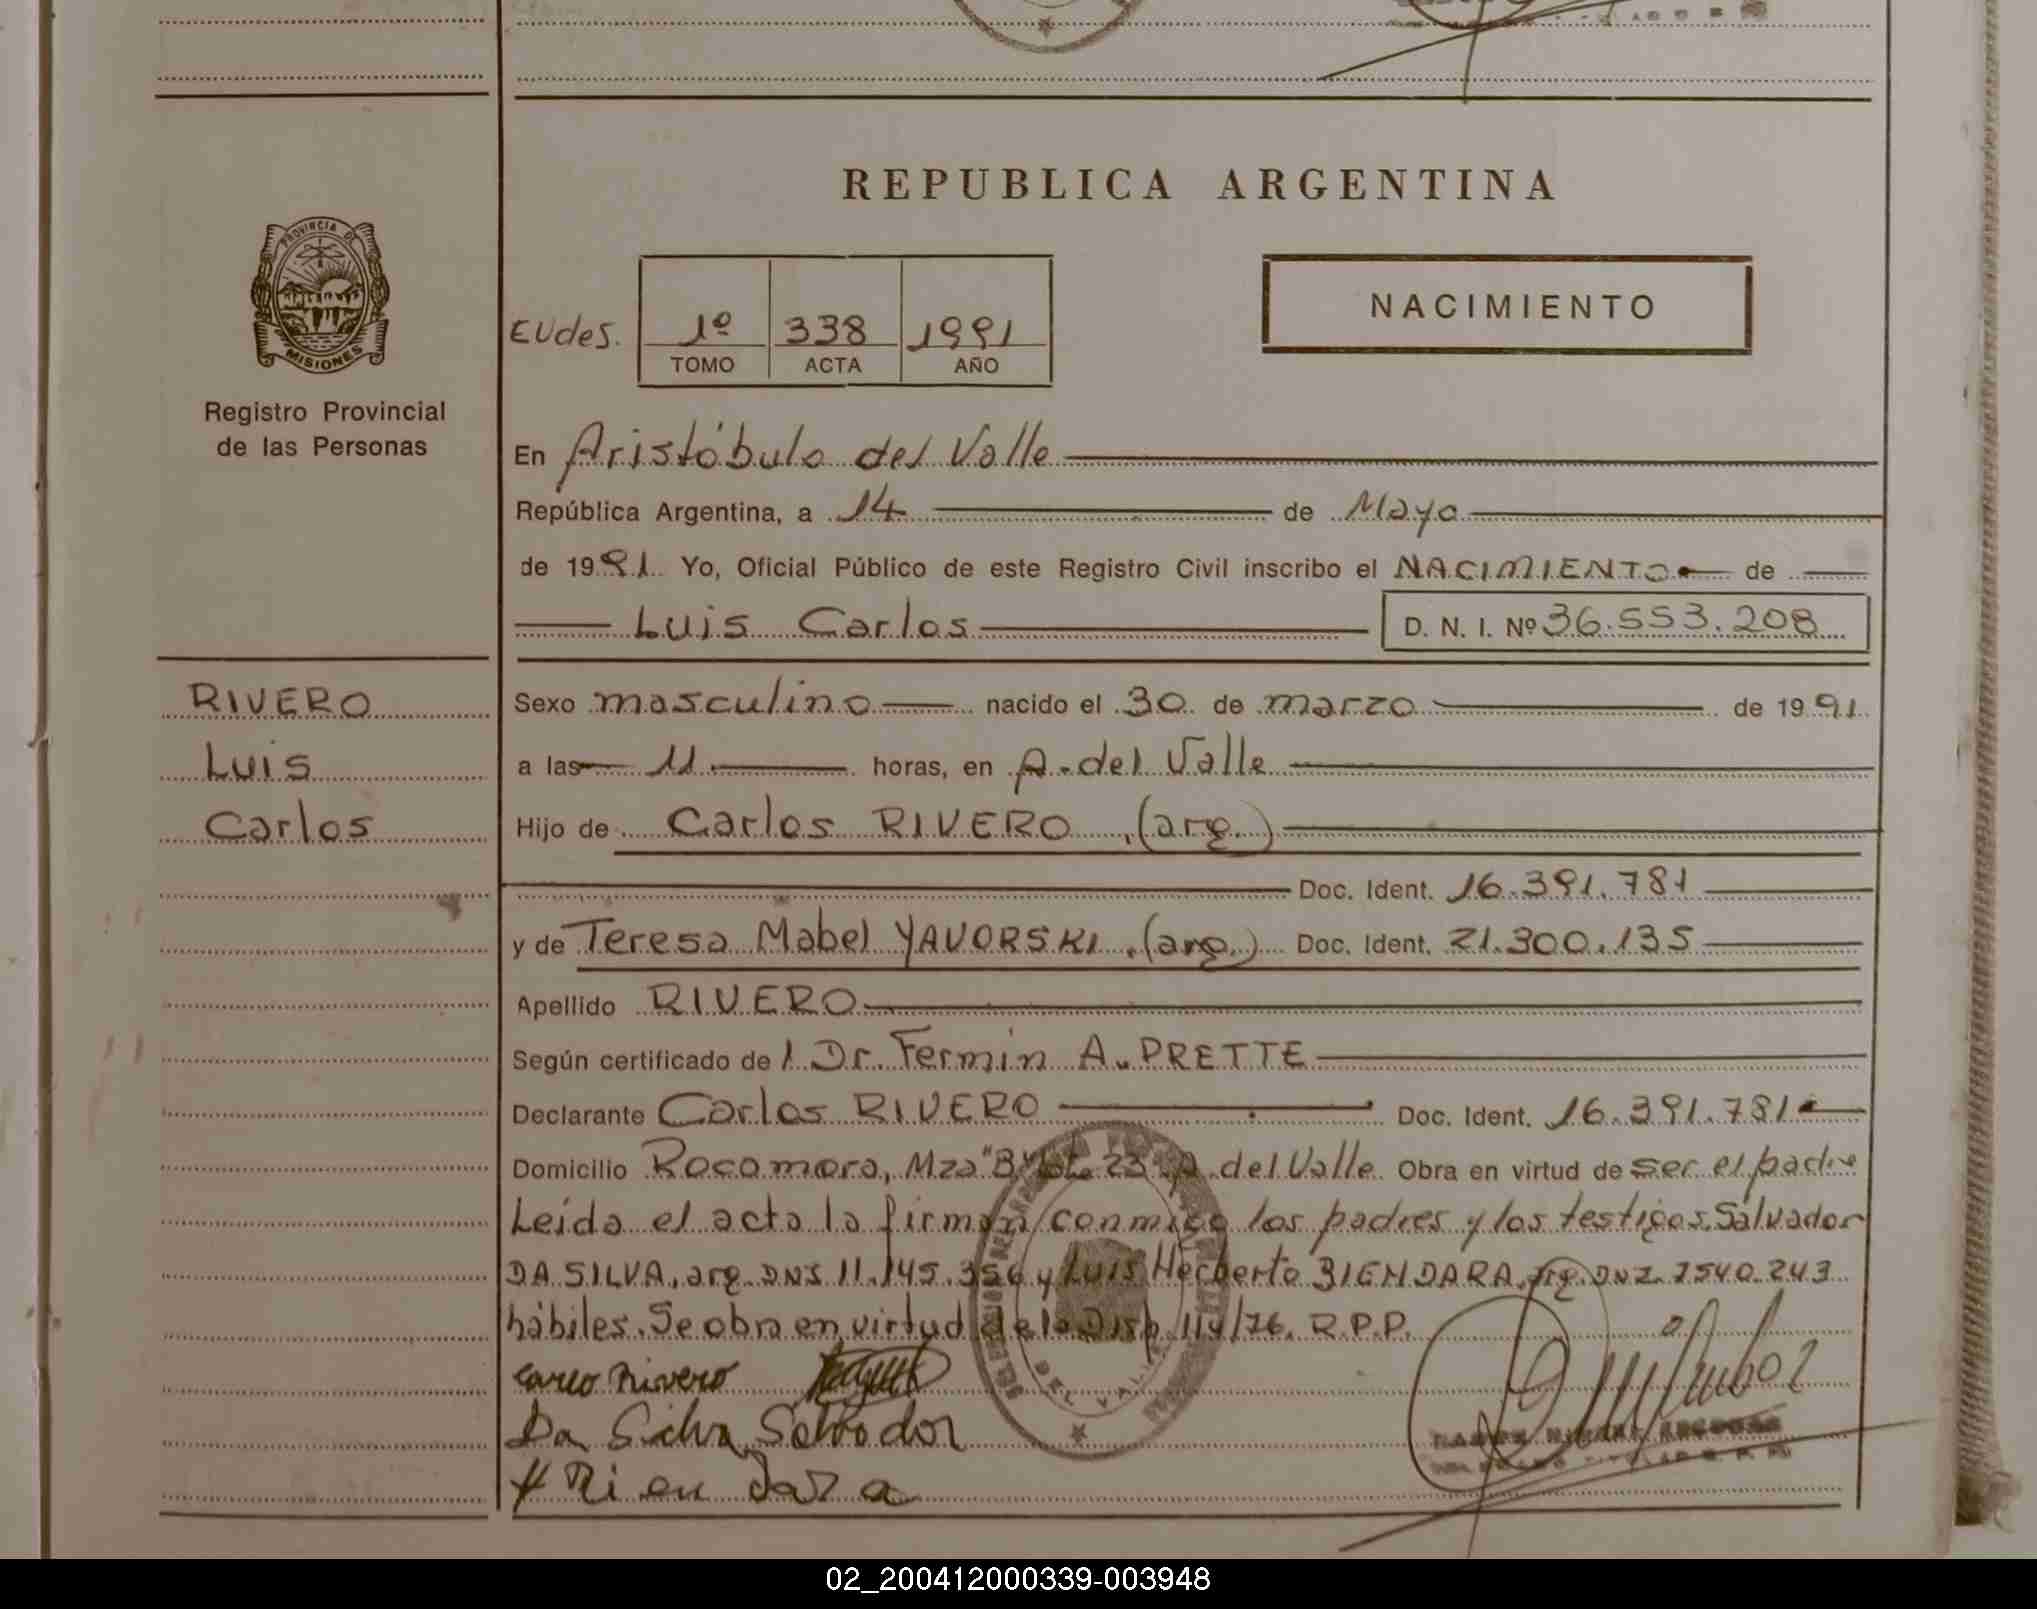 REPUBLICA ARGENTINA
PROVINCIA DE
MISIONES
Registro Provincial
de las Personas
NACIMIENTO
EUdes. 1º 338 1991
TOMO ACTA AÑO
En Aristóbulo del Valle
República Argentina, a 14 de Mayo
de 1991 Yo, Oficial Público de este Registro Civil inscribo el NACIMIENTO de
Luis Carlos D. N. I. Nº 36.553.208
RIVERO
Luis
Carlos
Sexo masculino nacido el 30 de marzo de 1991
a las 11 horas, en A. del Valle
Hijo de Carlos RIVERO (arg.)
Doc. Ident. 16.391.781
y de Teresa Mabel YAVORSKI (arg.) Doc. Ident. 21.300.135
Apellido RIVERO
Según certificado de l Dr. Fermin A. PRETTE
Declarante Carlos RIVERO Doc. Ident. 16.391.781
Domicilio Rocamora, Mza "B" Lot. 23 A. del Valle Obra en virtud de ser el padre
Leída el acta la firman conmigo los padres y los testigos Salvador
DA SILVA, arg. DNI 11.145.356 y Luis Herberto BIENDARA, arg. DNI. 7540.243
hábiles. Se obra en virtud de la Disp. 114/76. R.P.P.
Carlo Rivero
Da Silva Salvador
DEL VALLE
02_200412000339-003948